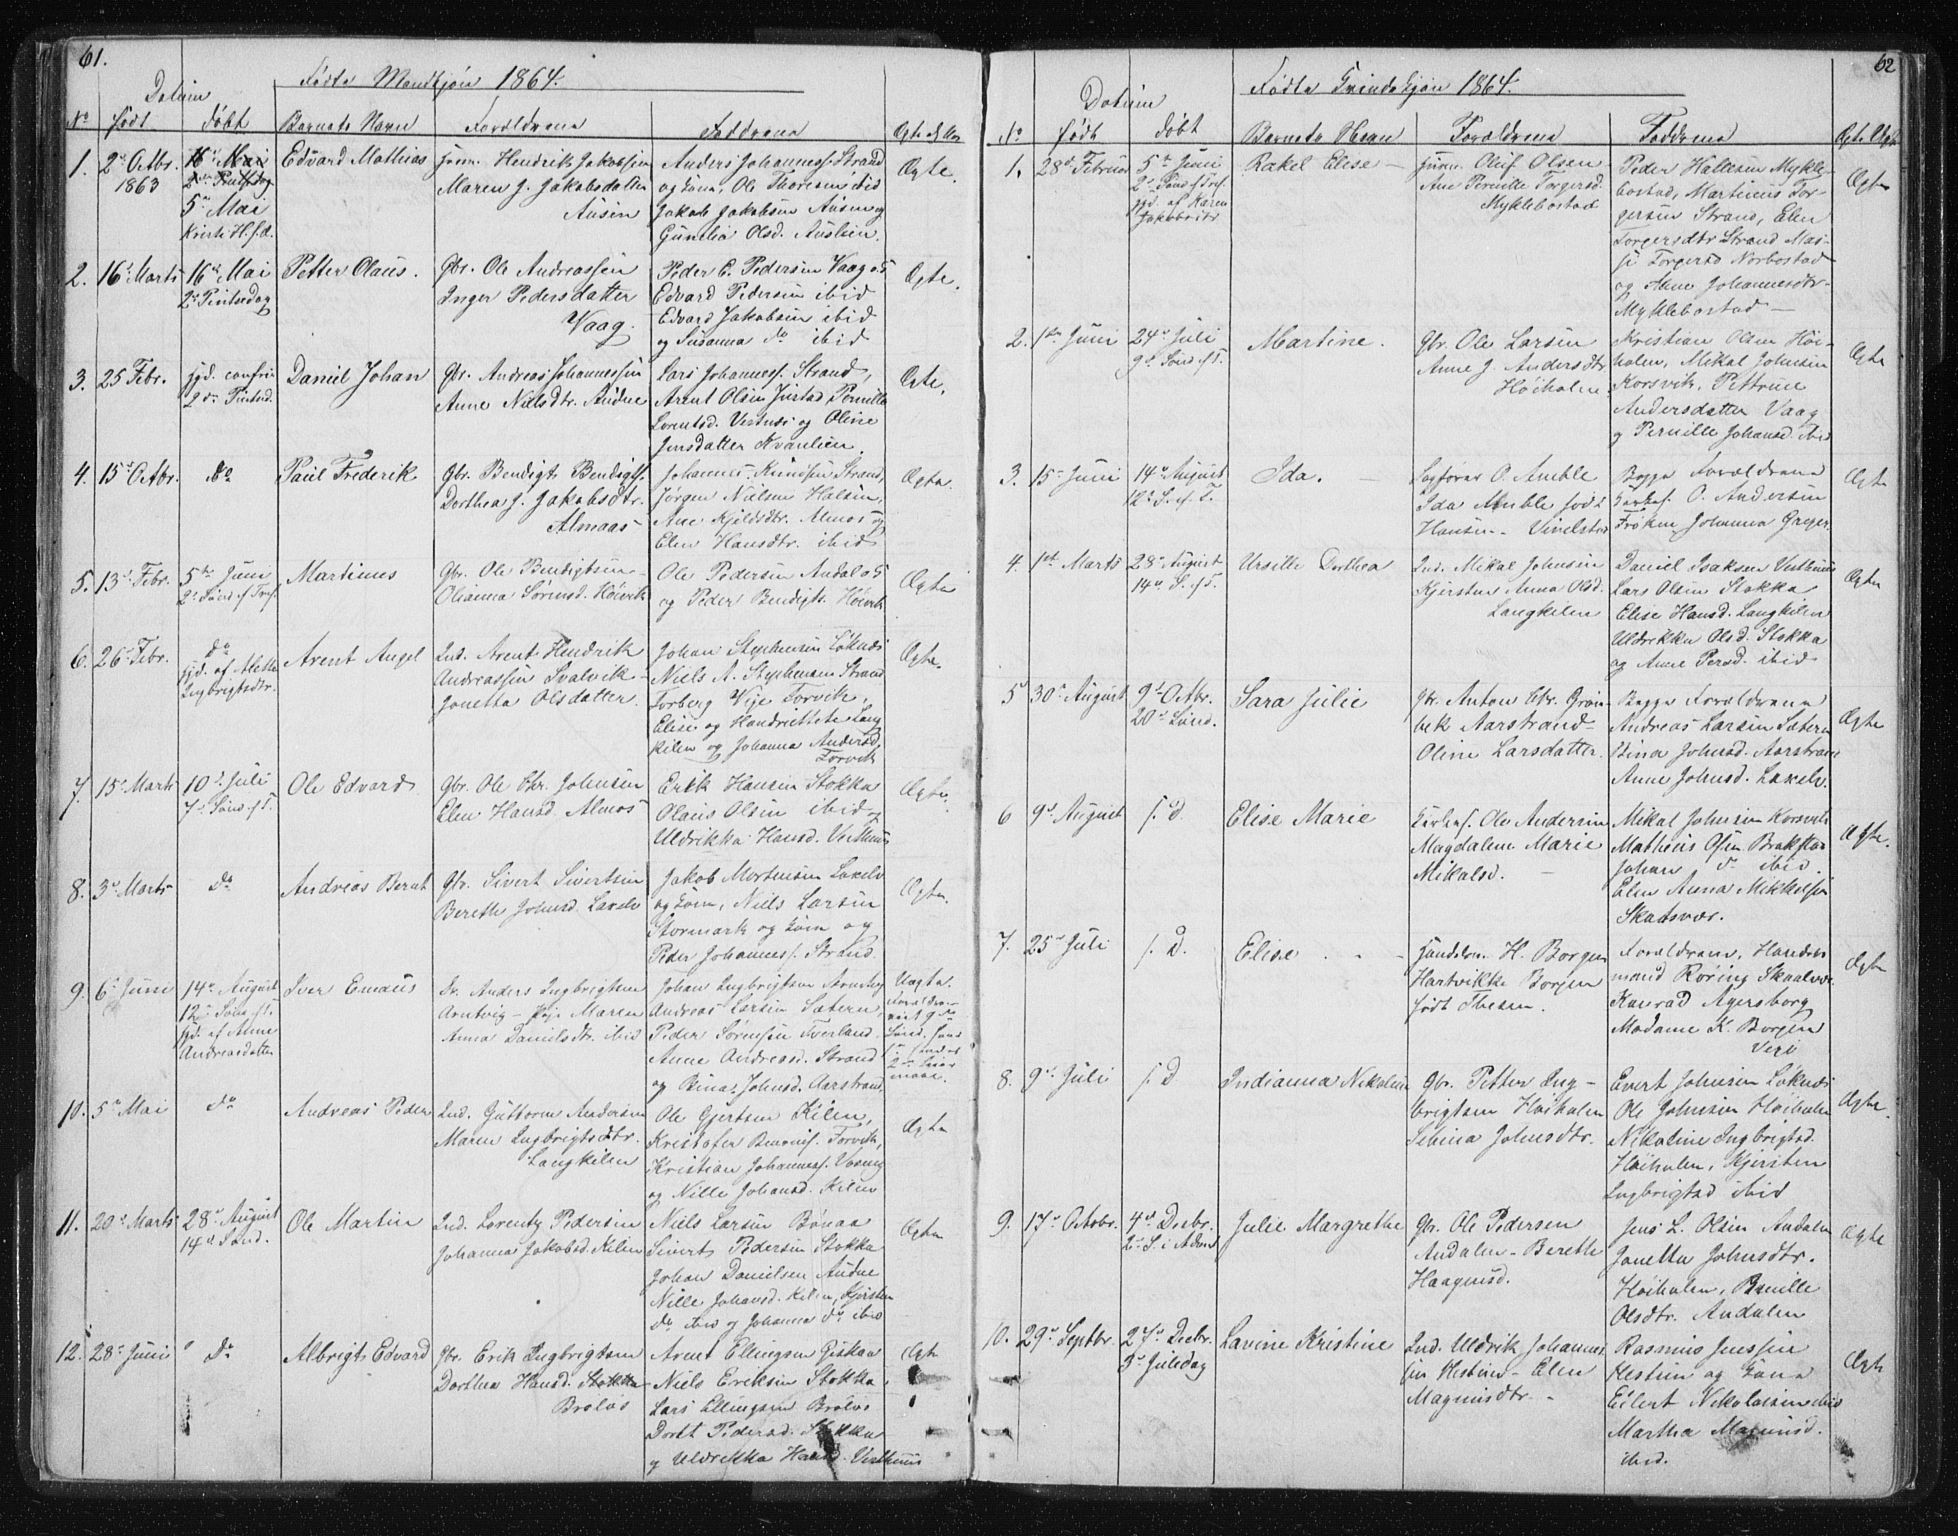 61.
Fødte Mandkjøn 1864.
Datum
No født døbt Barnets Navn Forældrene Faddrene
1. 2d Octbr. 1863
5te Mai
Kristi H.f.d.
Edvard Mathias
Hendrik Jakobsen
Maren J. Jakobsdatter
Ausen
Anders Johanness. Strand
og Kone, Ole Thoresen ibid
Jakob Jakobsen Ausen og
Gunelia Olsd.
Ægte.
2. 16d Marts
16d Mai
2d Pintsedag
Petter Olaus.
Gbr. Ole Andreassen
Inger Pedersdatter
Vaag.
Peder C. Pedersen Vaag
Edvard Pedersen ibid
Edvard Jakobsen ibid
og Susanna do ibid
Ægte.
3. 25 Febr.
hjd. confir.
2den Pintsd.
Daniel Johan
Gbr. Andreas Johannessen
Anne Nielsdtr. Audne
Lars Johanness. Strand,
Arent Olsen Justad Pernille
Lorentsd. Vestnes og Oline
Jensdatter Kvanlien
Ægte.
4. 15d Octbr.
do
Paul Frederik
Gbr. Bendigt Bendigts.
Dorthea J. Jakobsdtr.
Almaas
Johannes Knudsen Strand,
Jørgen Nielsen Halsen,
Ane Kjeldsdtr. Almos og
Elen Hansdtr. ibid
Ægte.
5. 13d Febr.
5te Juni
2d Sønd. ef. Tref.
Martinus
Gbr. Ole Bendigtsen
Olianna Sørensd. Høivik
Ole Pedersen Andal
og Peder Bendigts. Høivik
Ægte
6. 26d Febr.
do
hjd. af Mette
Ingbrigtsdtr.
Arent Angel
Ind. Arent Hendrik
Andreassen Svalvik
Jonetta Olsdatter.
Johan Stephensen Løknes
Niels A. Stephensen Strand
Torberg Vije Forvik,
Elise og Handriettete Lang
kilen og Johanna Andersd.
Forvik
Ægte.
7. 15d Marts
10d Juli
7d Sønd. ef. T.
Ole Edvard
Gbr. Ole Chr. Johnsen
Elen Hansd. Almos
Erik Hansen Stokka
Olaus Olsen ibid og
Uldrikka Hansd. Vesthuus
Ægte.
8. 3d Marts
do
Andreas Bernt
Gbr. Sivert Sivertsen
Berethe Johnsd. Laxelv
Jakob Mortensen Laxelv
og Kone, Niels Larsen
Stormark og Kone og
Peder Johanness. Strand
Ægte.
9. 6d Juni
14d August
12d Sønd. ef. T.
hjd. af Anne
Andreasdatter
Iver Emaus
Dr. Anders Ingbrigtsen
Arntvig - Pig. Maren
Anna Danielsdtr. ibid
Johan Ingbrigtsen Arntvig
Andreas Larsen Sætern,
Peder Sørensen Tverland
Anne Andreasd. Strand
og Bina Johnsd. Aarstrand,
Uægte.
10. 5d Mai
do
Andreas Peder
Ind. Guttorm Andersen
Maren Ingbrigtsdtr.
Langkilen
Ole Gjertsen Kilen,
Kristofer Forvik,
Kristian Johanness.
og Nille Johansd. Kilen
Ægte
11. 20d Marts
28d August
14d Sønd.
Ole Martin
Ind. Lorentz Pedersen
Johanna Jakobsd. Kilen
Niels Larsen Bønaa
Sivert Pedersen Stokka
Johan Danielsen Audne
Nille Johansd. Kilen, Kjersten
do ibid og Johanna do ibid
Ægte
12. 28d Juni
do
Albrigt Edvard
Gbr. Erik Ingbrigtsen
Dorthea Hansd. Stokka
Brøløs
Arent Ellingsen
Niels Eriksen Stokka
Lars Ellingsen Brøløs
Dortt Pedersd. Stokka
og Uldrikka Hansd. Vesthuus
Ægte
62
Fødte Qvindekjøn 1864.
Datum
No født døbt Barnets Navn Forældrene Faddrene
1. 28d Februar
5te Juni
2d Sønd. ef. Tref.
hjd. af Karen
Jakobsdtr
Rakel Elise
Oluf Olsen
Ane Pernille Torgersd.
Myklebostad
Peder Hallesen Mykle-
bostad, Martinus Tor-
gersen Strand, Elen
Torgersdtr Strand
Torgersd Norbostad
og Anne Johannesdtr.
Myklebostad
Ægte
2. 1ste Juni
24d Juli
9d Sønd. ef. T.
Martine.
Gbr. Ole Larsen
Anne J. Andersdtr
Høiholm
Kristian Olsen Høi-
holm, Mikal Johnsen
Korsvik, Pettrine
Andersdatter Vaag
og Pernille Johansd. ibid
Ægte
3. 15d Juni
14d August
12d S. ef. T.
Ida.
Sagfører O. Amble
Ida Amble født
Hansen - Vivelstad
Begge Forældrene
O. Andersen
Frøken Johanna Greger.
Ægte
4. 1ste Marts
28d August
14d S. ef. T.
Ursille Dorthea
Ind. Mikal Johnsen
Kjersten Anna Olsd.
Langkilen
Daniel Isaksen Vesthuus
Lars Olsen Stokka
Elise Hansd. Langkilen
Uldrikka Olsd. Stokka
og Anne Persd. ibid
Ægte
5 30d August
9d Octbr.
20d Sønd.
Sara Julie
Gbr. Anton Chr. Grøn-
bek Aarstrand
Oline Larsdatter.
Begge Forældrene
Andreas Larsen Sætern
Stina Johnsd. Aarstrand
Anne Johnsd. Laxelv.
Ægte
6 9d August
s. d.
Elise Marie
Ole Andersen
Magdalene Marie
Mikalsd.
Mikal Johnsen Korsvik
Mathæus Brakstad
Johan do ibid.
Elen Anna Mikkelsen
Skatsvær.
Ægte.
7. 25d Juli
s. d.
Elise
Handelsm. H. Borgen
Hartvikke Borgen
født Thesen.
Forældrene, Handels-
mand Røring
Konrad Agersborg
Madame K. Borgen
Ægte
8. 9d Juli
s. d
Indianna Nikoline
Gbr. Petter Ing-
brigtsen Høiholm
Sebina Johnsdtr.
Evert Johnsen Løknes
Ole Johnsen Høiholm
Nikoline Ingbrigtsd.
Høiholm, Kjersten
Ingbrigtsd ibid
Ægte.
9. 17d Octbr.
4d Decbr.
2d S. i Advent
Julie Margrethe
Gbr. Ole Pedersen
Andalen - Berethe
Haagensd.
Jens L. Olsen Andalen
Jonetta Johnsdtr.
Høiholm, Pernille
Olsdtr. Andalen
Ægte
10. 29d Septbr.
27d Decbr.
3d Juledag
Lavine Kristine
Ind. Uldrik Johannes
sen Hestnes - Elen
Magnusdtr.
Rasmus Jenssen
Hestun og Kone
Eilert Nikolaisen ibid
Martha Magnusd.
ibid.
Ægte